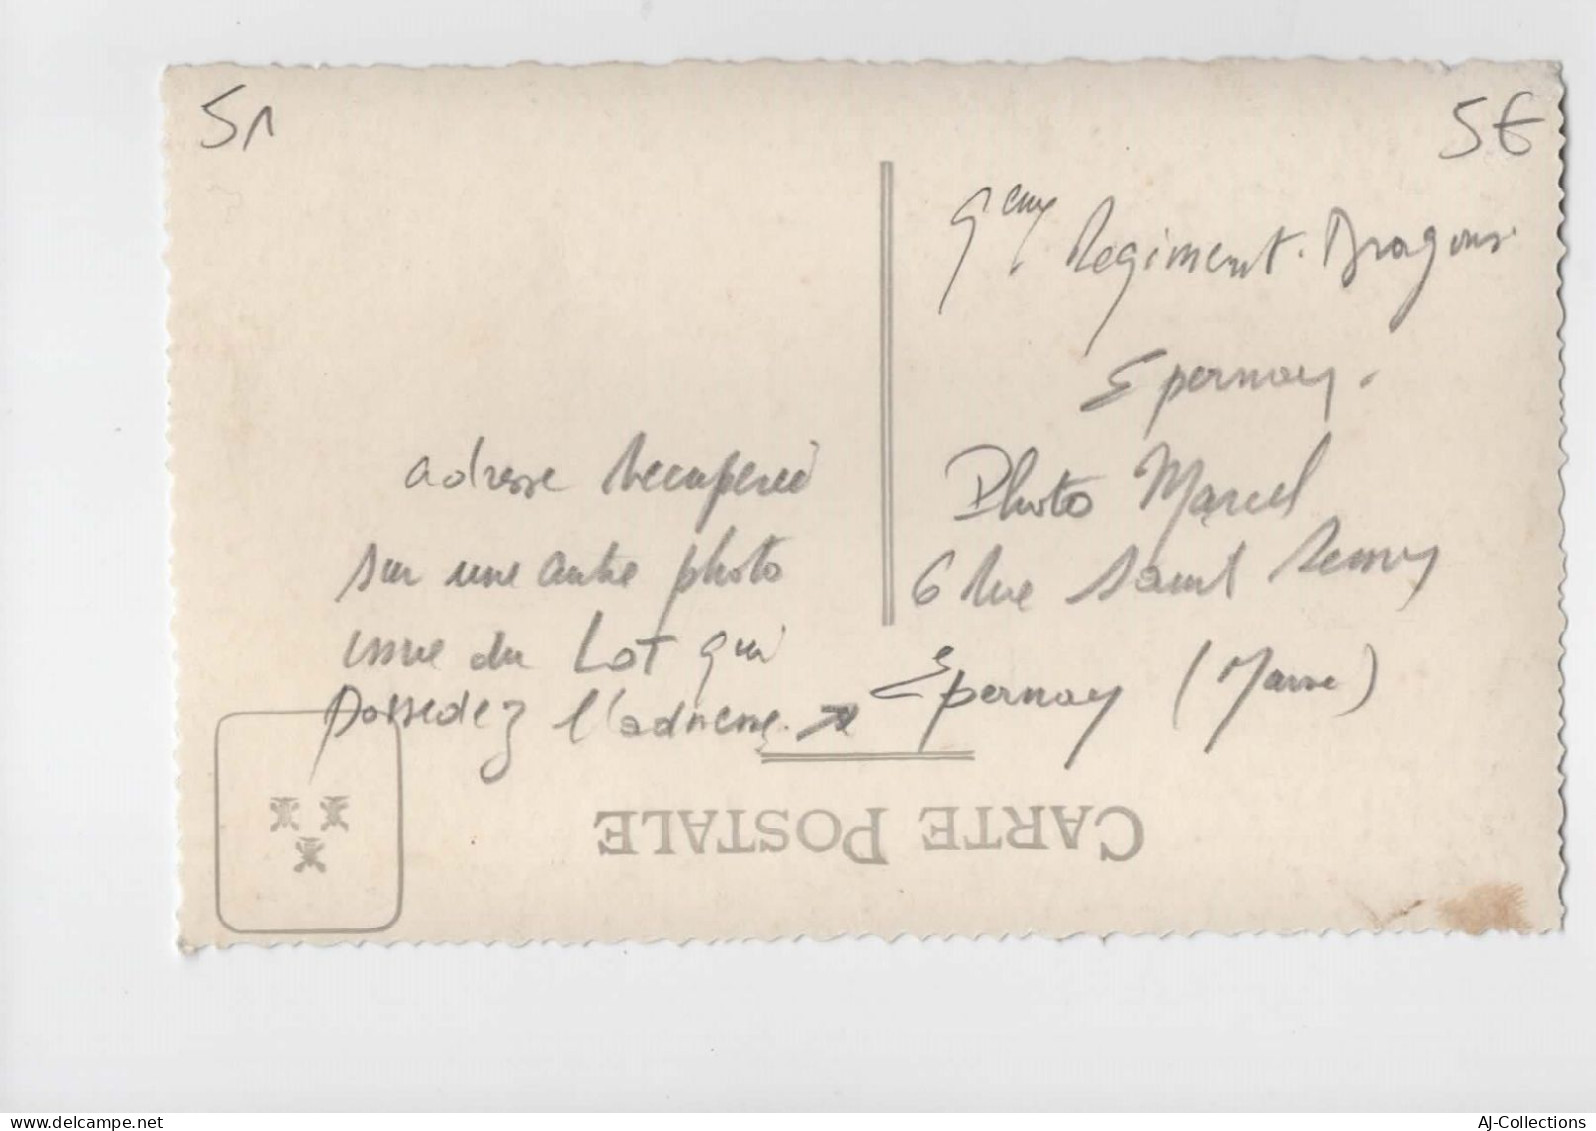 51
5€
9eme Regiment. Dragons
Epernay.
Photo Marcel
6 rue Saint Remy
Epernay (Marne)
adresse recuperée
sur une autre photo
issue du Lot qui
possedez l'adresse.
CARTE POSTALE
www.delcampe.net
AJ-Collections